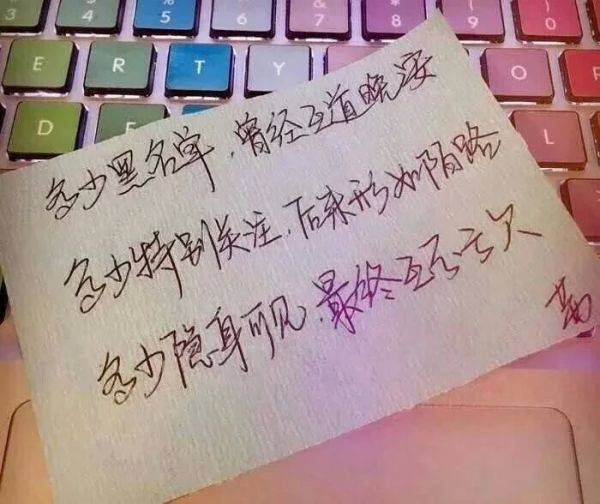 3 4 5 6 7 8 9 0
E R T Y O P
D L
多少黑名单,曾经互道晚安
多少特别关注,后来形如陌路
多少隐身可见,最终互不亏欠